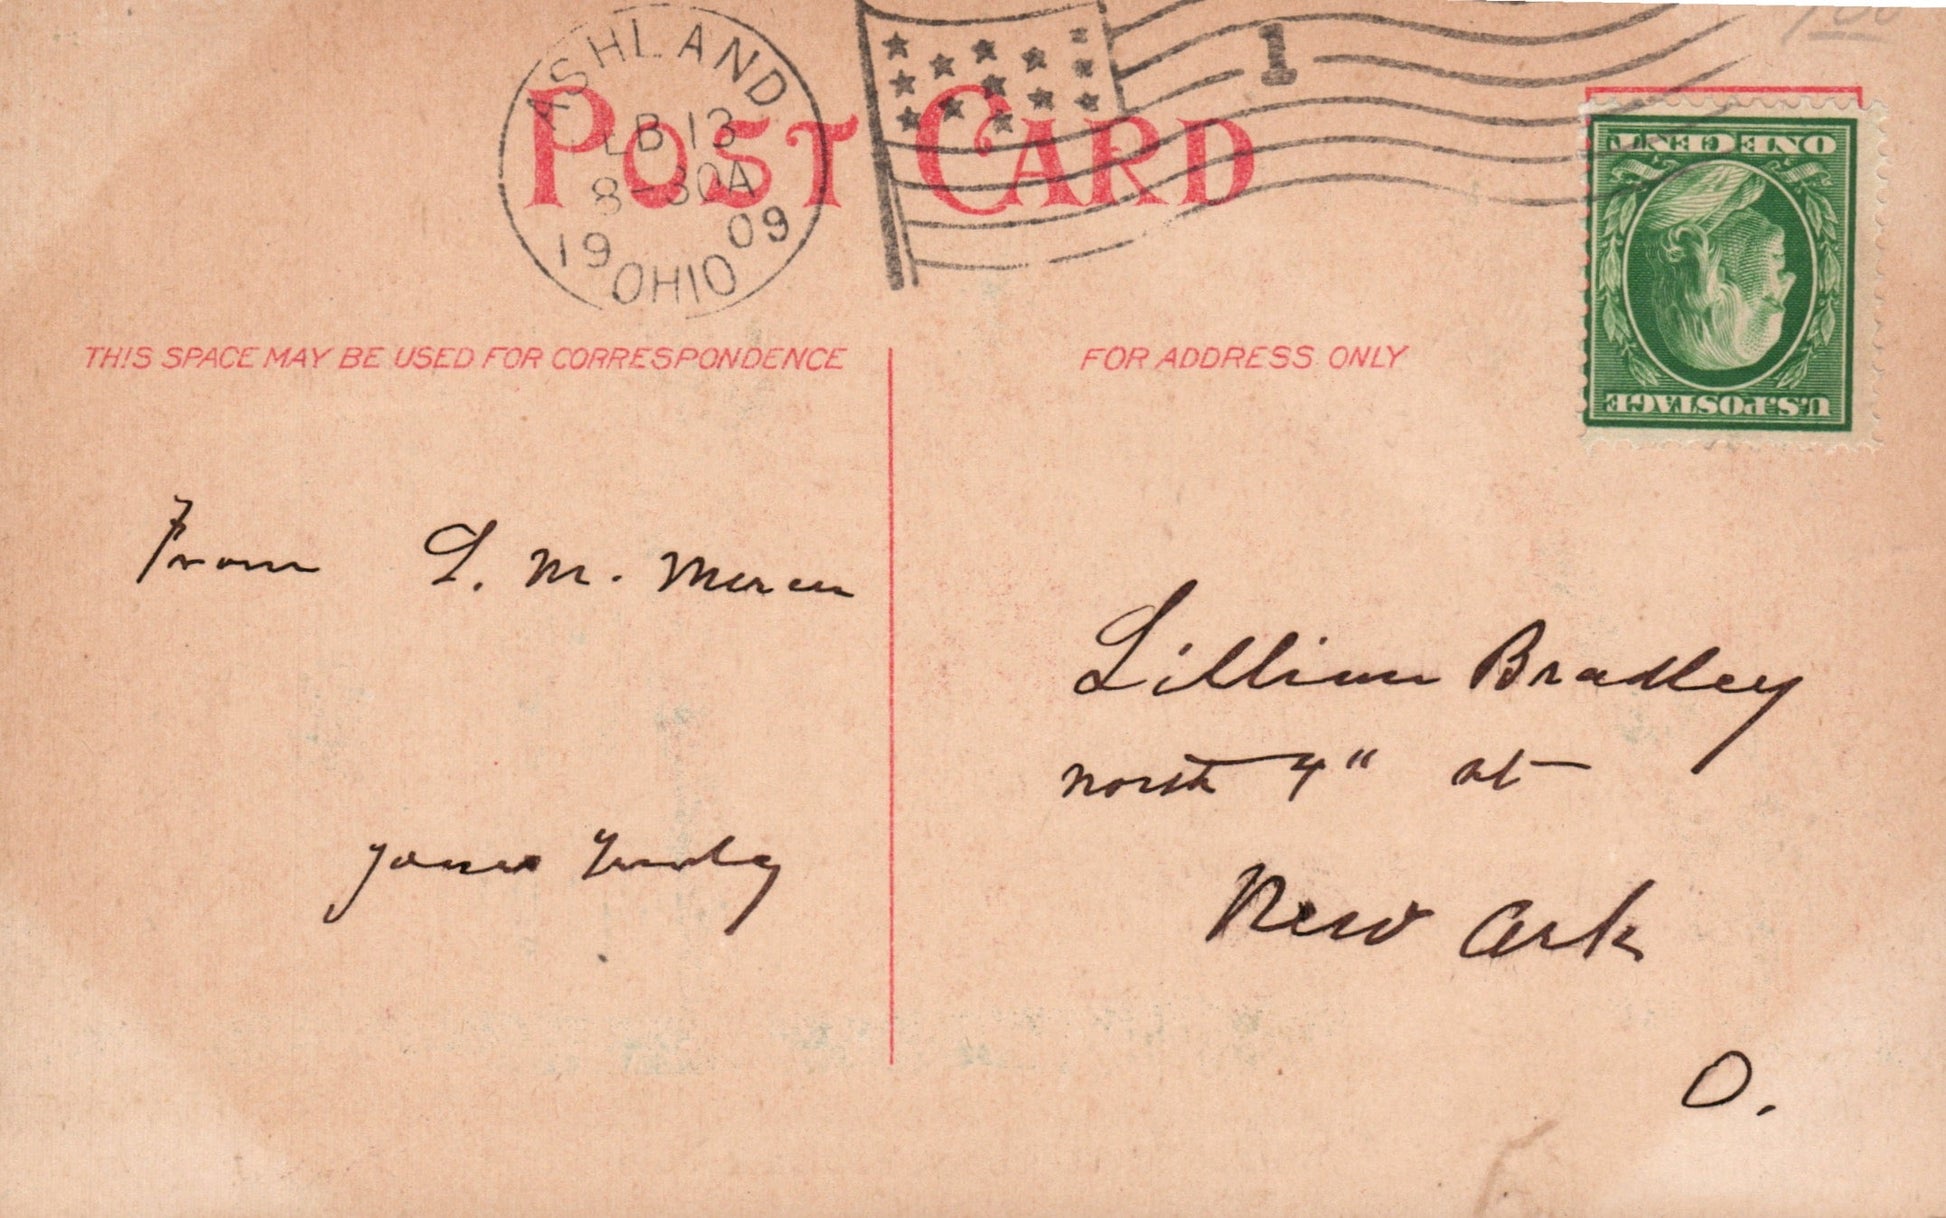 ASHLAND
EB 13
8-30A
1909
OHIO
1
1.00
POST CARD
ONE CENT
U.S. POSTAGE
THIS SPACE MAY BE USED FOR CORRESPONDENCE
FOR ADDRESS ONLY
From L. M.
Lillian Bradley
north 4" st
yours truly
New Ark
O.